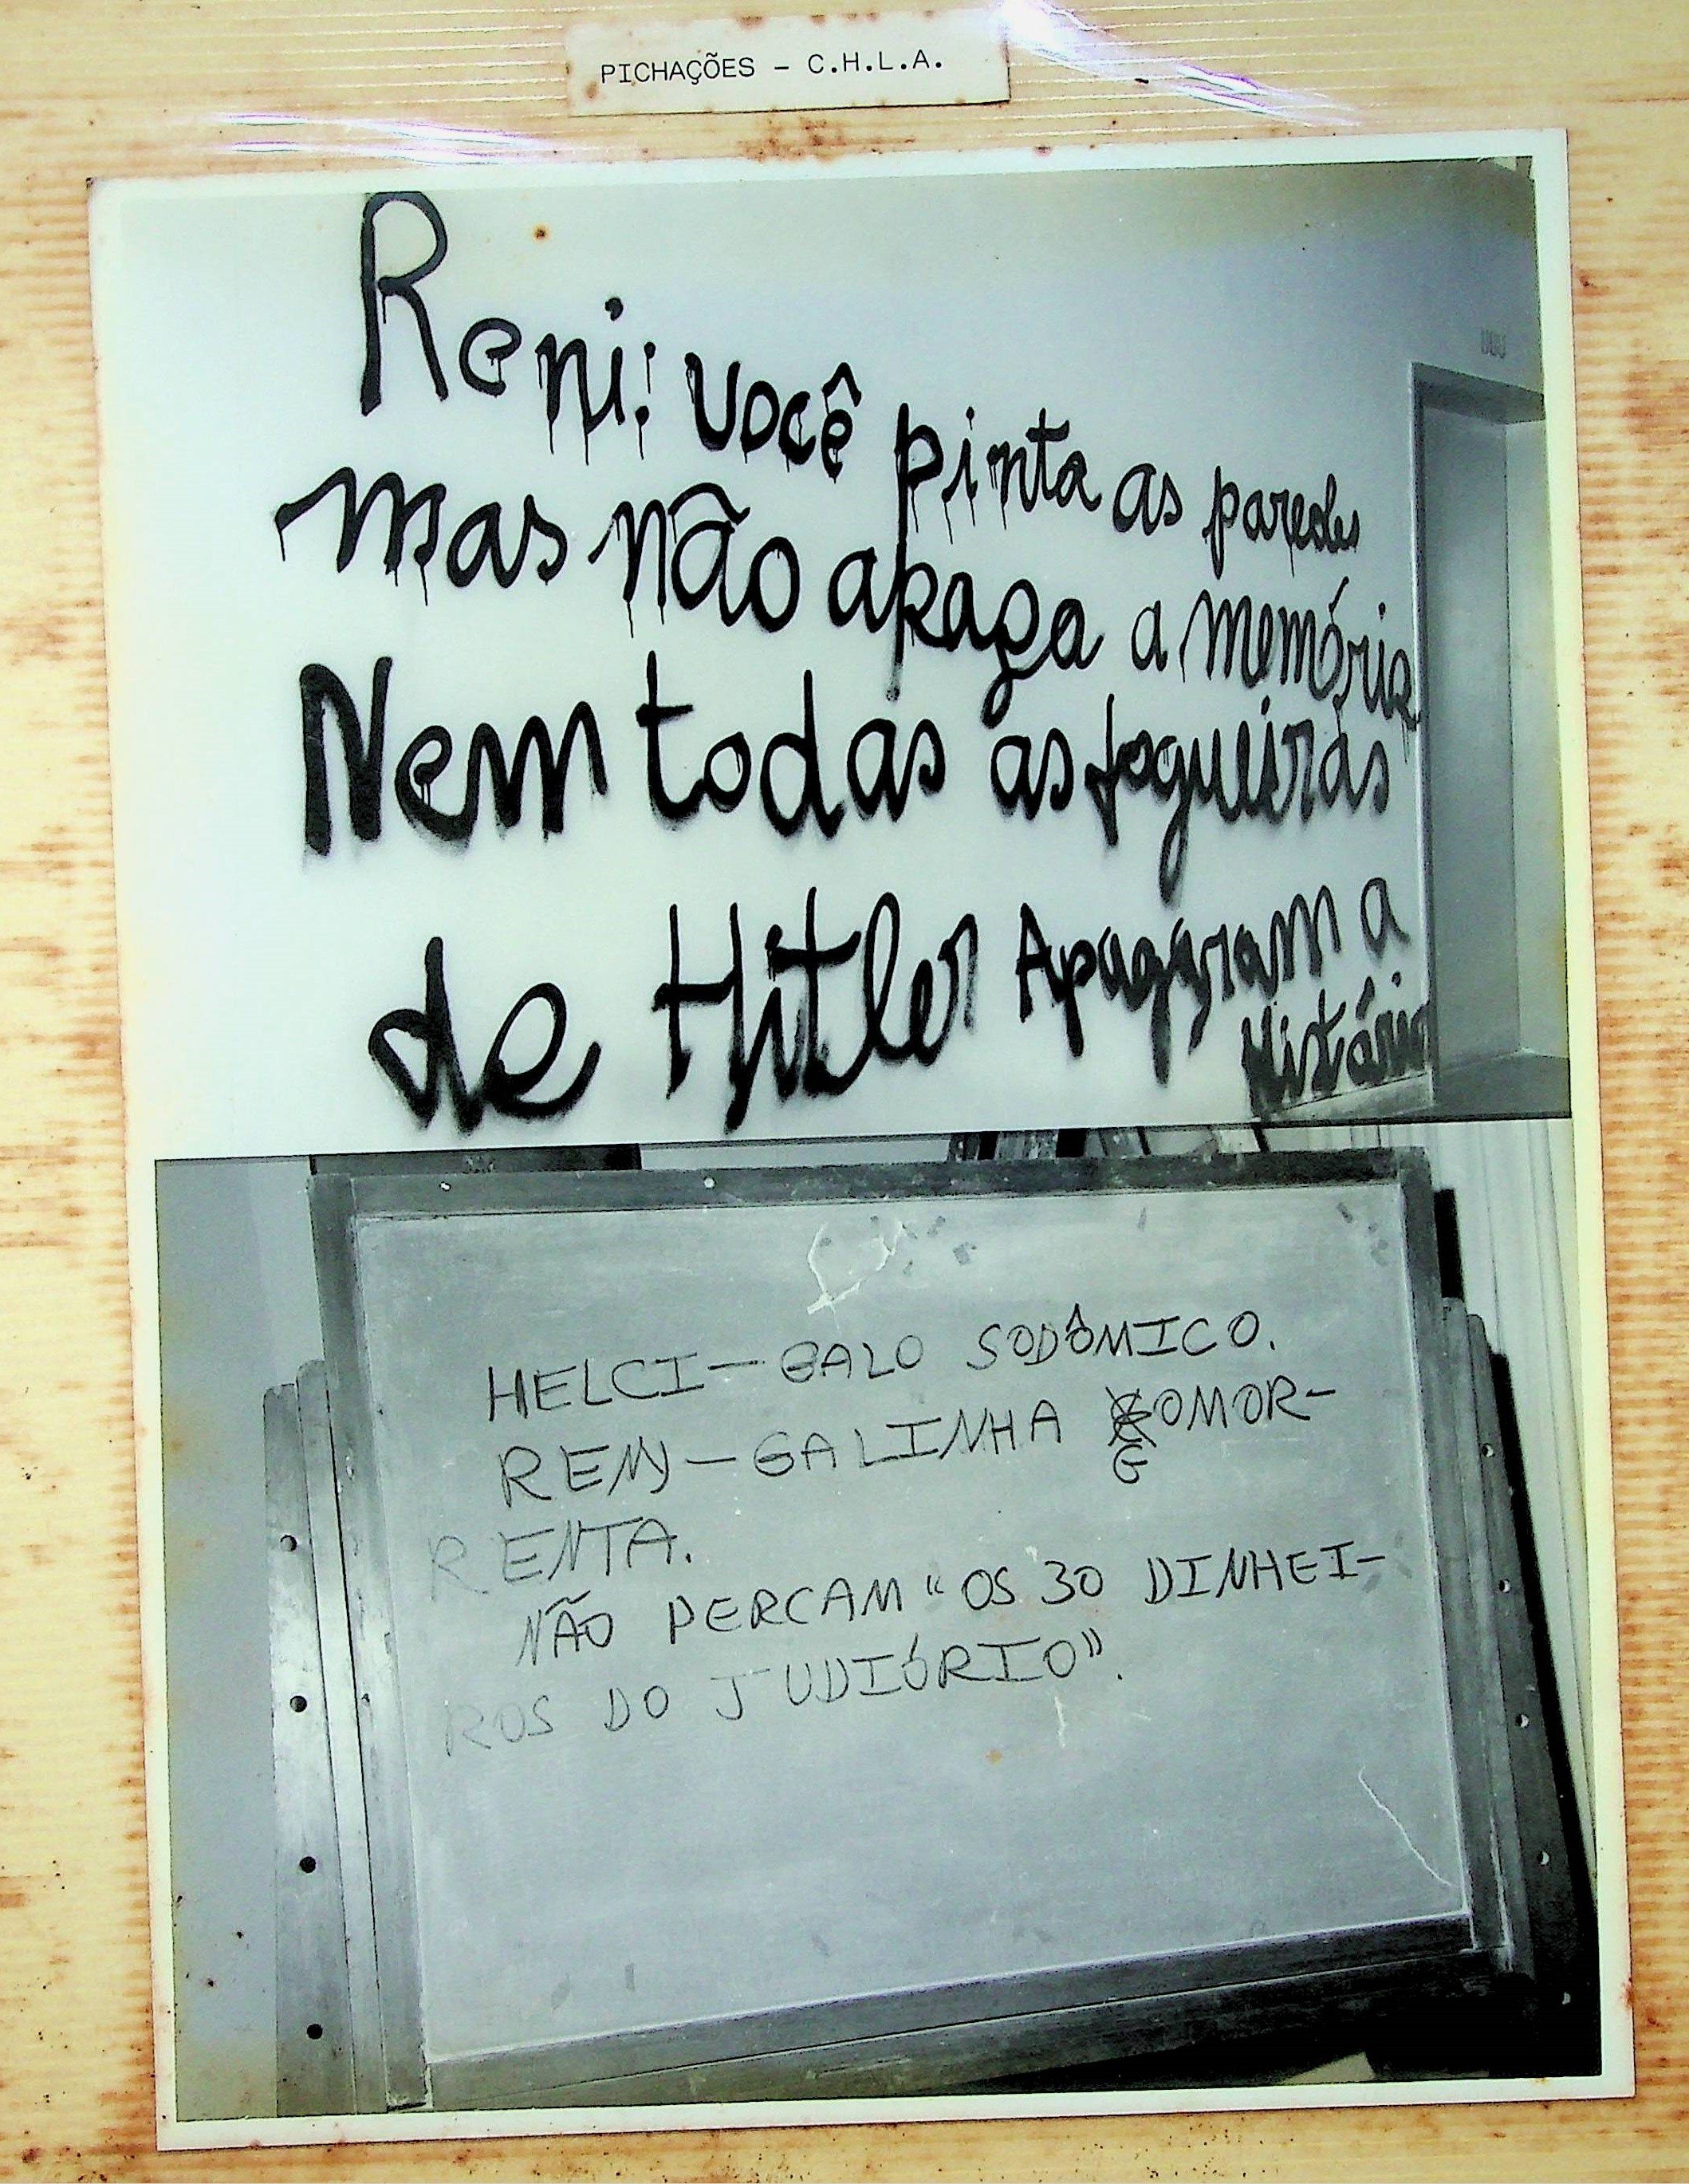 PICHAÇÕES - C.H.L.A.
Reni: você pinta as paredes
mas não apaga a memória
Nem todas as fogueiras
de Hitler Apagaram a
História
HELCI - GALO SODÔMICO.
RENY - GALINHA GOMOR-
RENTA.
NÃO PERCAM "OS 30 DINHEI-
ROS DO JUDIÓRIO".